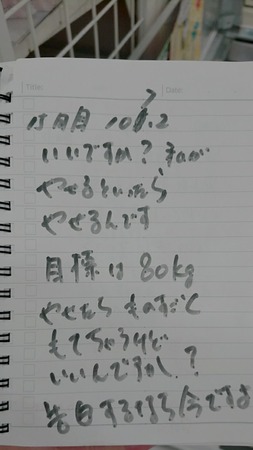 Title: Date:
15日目 107.2
いいですか? 私が
やせるといったら
やせるんです
目標は80kg
やせたら ものすごく
もてちゃうけど
いいんですか?
告白するなら今ですよ